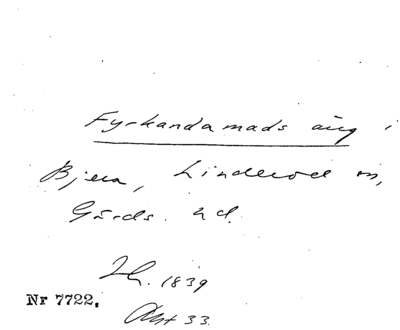 Fyrkandamads äng i
Bjera, Linderöd sn,
Gärds hd.
Th. 1839
Nr 7722.
Akt 33.